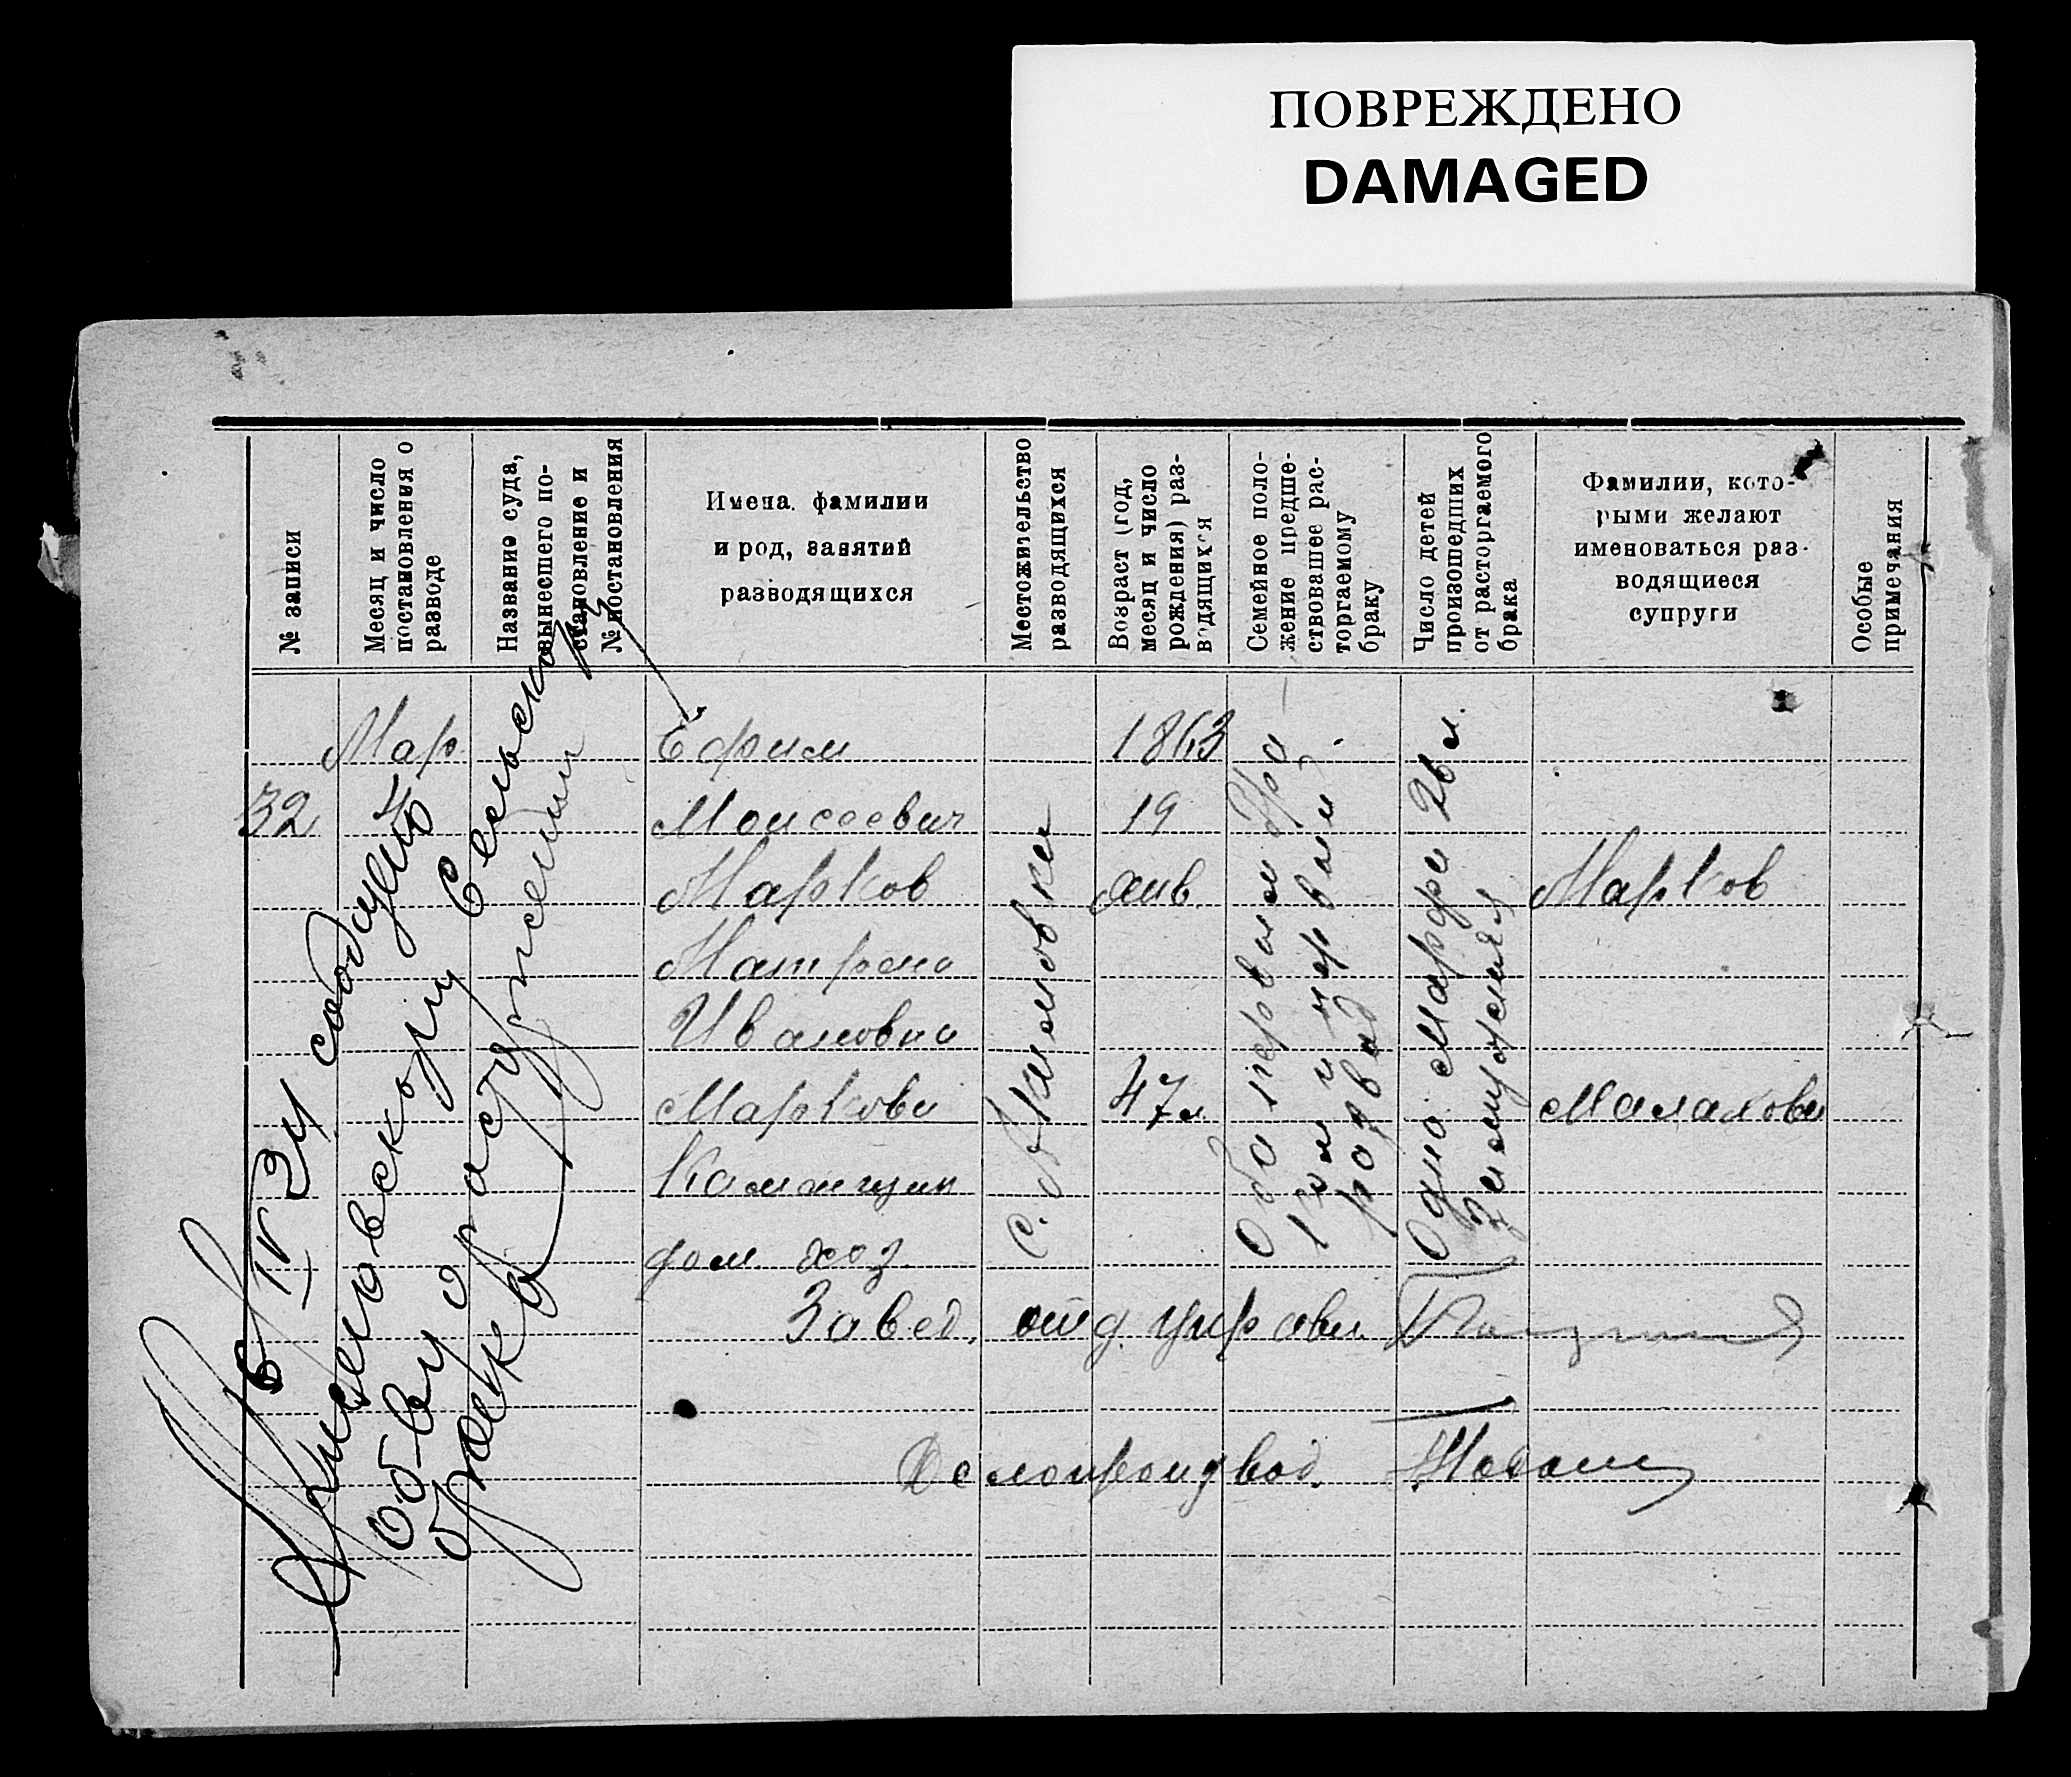 ПОВРЕЖДЕНО
DAMAGED
№ записи
Месяц и число
постановления о
разводе
Название суда,
вынесшего по-
становление и
№ постановления
Имена. фамилии
и род, занятий
разводящихся
Местожительство
разводящихся
Возраст (год,
месяц и число
рождения) раз-
водящихся
Семейное поло-
жение предше-
ствовавшее рас-
торгаемому
браку
Число детей
произошедших
от расторгаемого
брака
Фамилии, кото-
рыми желают
именоваться раз-
водящиеся
супруги
Особые
примечания
32
Мар.
4
6/IV 24 сообщено
Сельском
об-ву о расторжении
брака
Ефим
Моисеевич
Марков
Матрена
Ивановна
Маркова
дом. хоз.
1863
19
янв.
47 л.
Оба первым бра
1 ом и первым
развод
Одна Марфа 26 л.
замужняя
Марков
Малахова
Завед. отд. управл.
Делопроизвод.